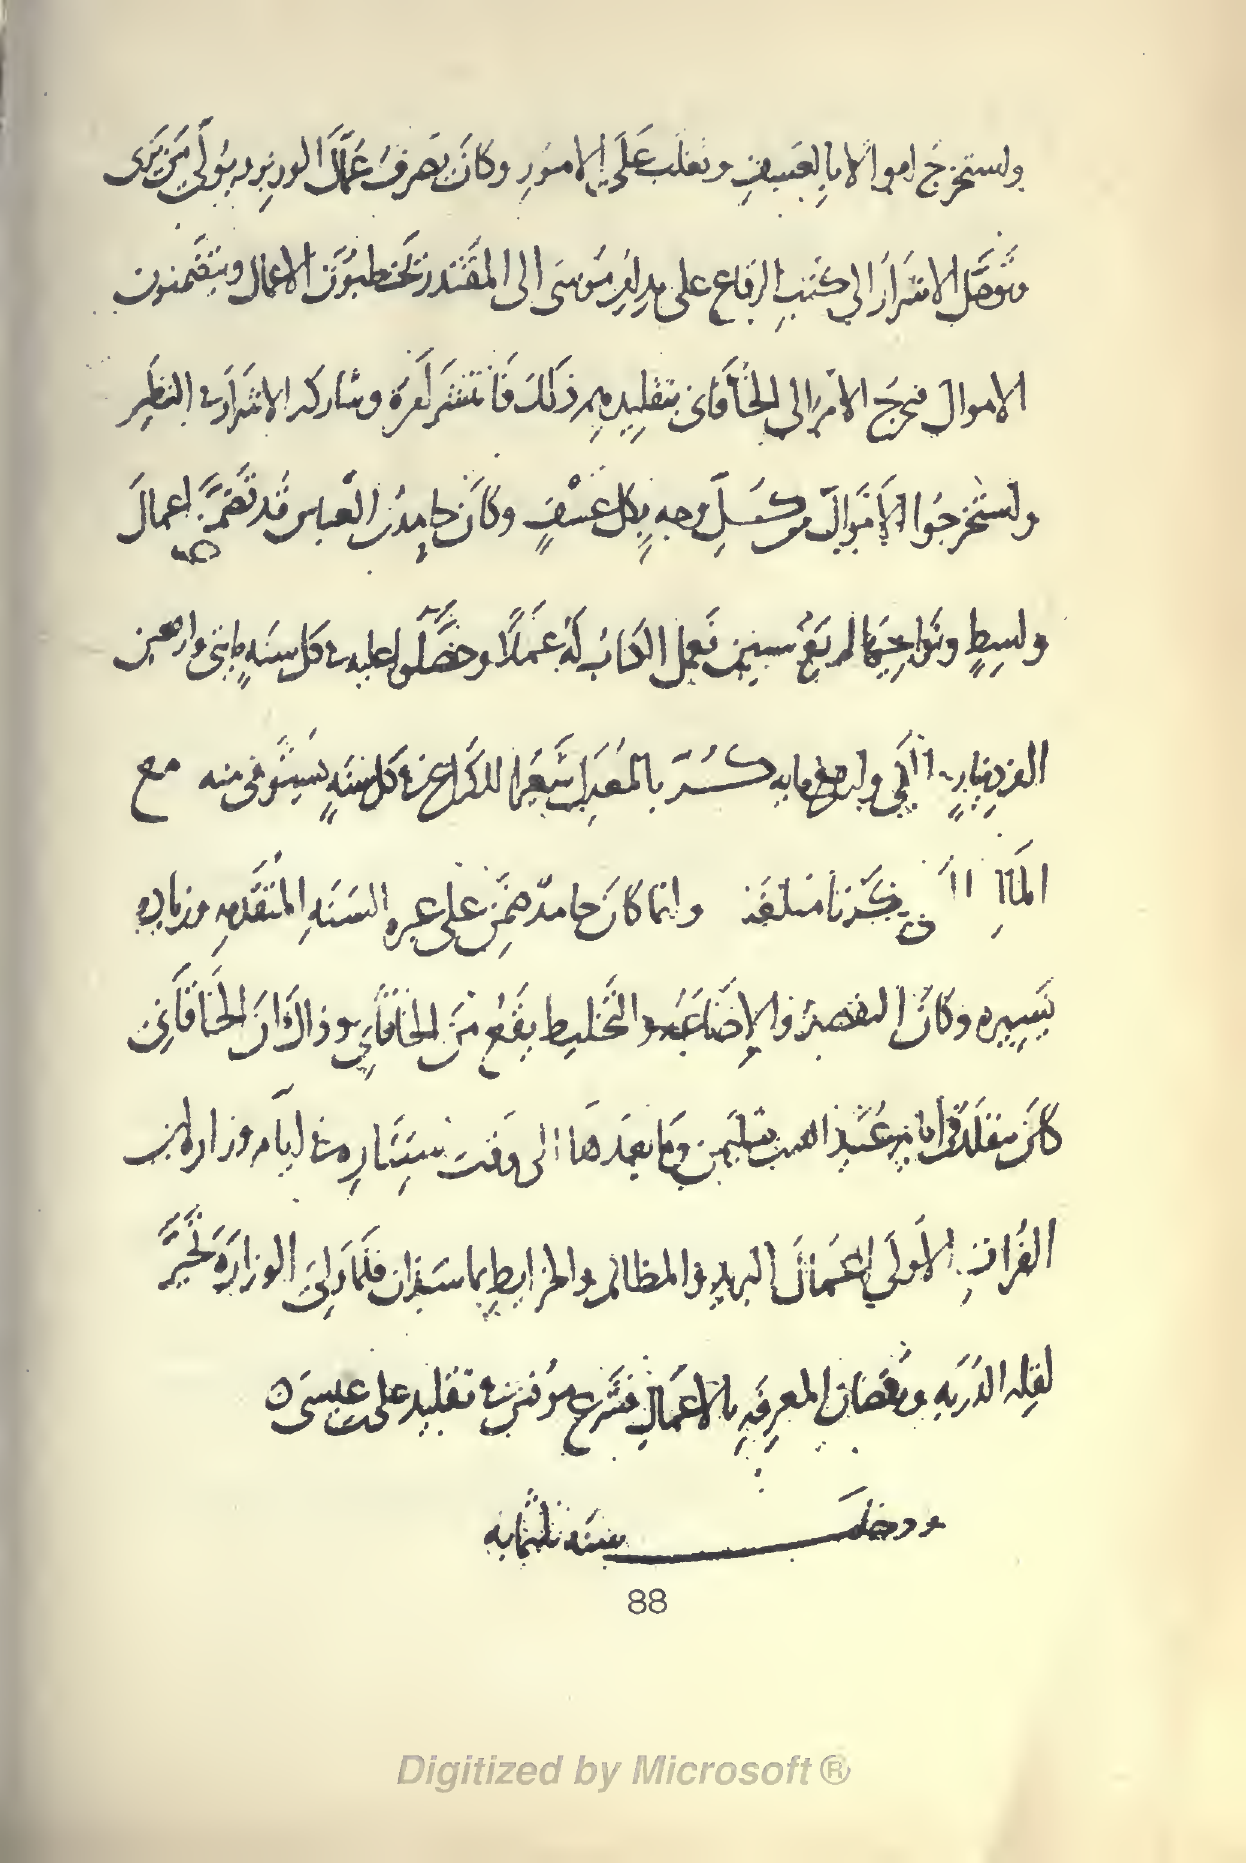 واستخرج اموالا بالعسف وتغلب على الامور وكان يصرف عمال الوزير ويولى من يرى
وتوصل الاشرار الى كتب الرقاع على يد ام موسى الى المقتدر يخطبون الاعمال ويتضمنون
الاموال فيخرج الامر الى الخاقانى بتقليدهم ذلك فانتشر امره وشاركه الاشرار فى النظر
واستخرجوا الاموال من كل وجه بكل عسف وكان حامد بن العباس قد تضمن اعمال
واسط ونواحيها اربع سنين فعمل الكتاب له عملا وحصلوا عليه فى كل سنة مايتى واربعين
الف دينار واربع مايه كر بالمعدل شعيرا للكراع فى كل سنة يستوفى منه مع
المال الذى ذكرنا مبلغه وانما كان حامد ضمن على عبره السنه المتقدمه وزياده
يسيره وكان التقصير والاضاعه والتخليط يقع من الخاقانى وذاك ان الخاقانى
كان يتقلد فى ايام عبيد الله بن سليمن وما بعدها الى وقت استتاره فى ايام وزاره ابن
الفرات الاولى اعمال البريد والمظالم والخرايط بماسبذان فلما ولى الوزاره تحير
لقله الدربه ونقصان المعرفه بالاعمال فشرع مونس فى تقليد على بن عيسى
ودخلت سنه ثلثمايه
88
Digitized by Microsoft ®